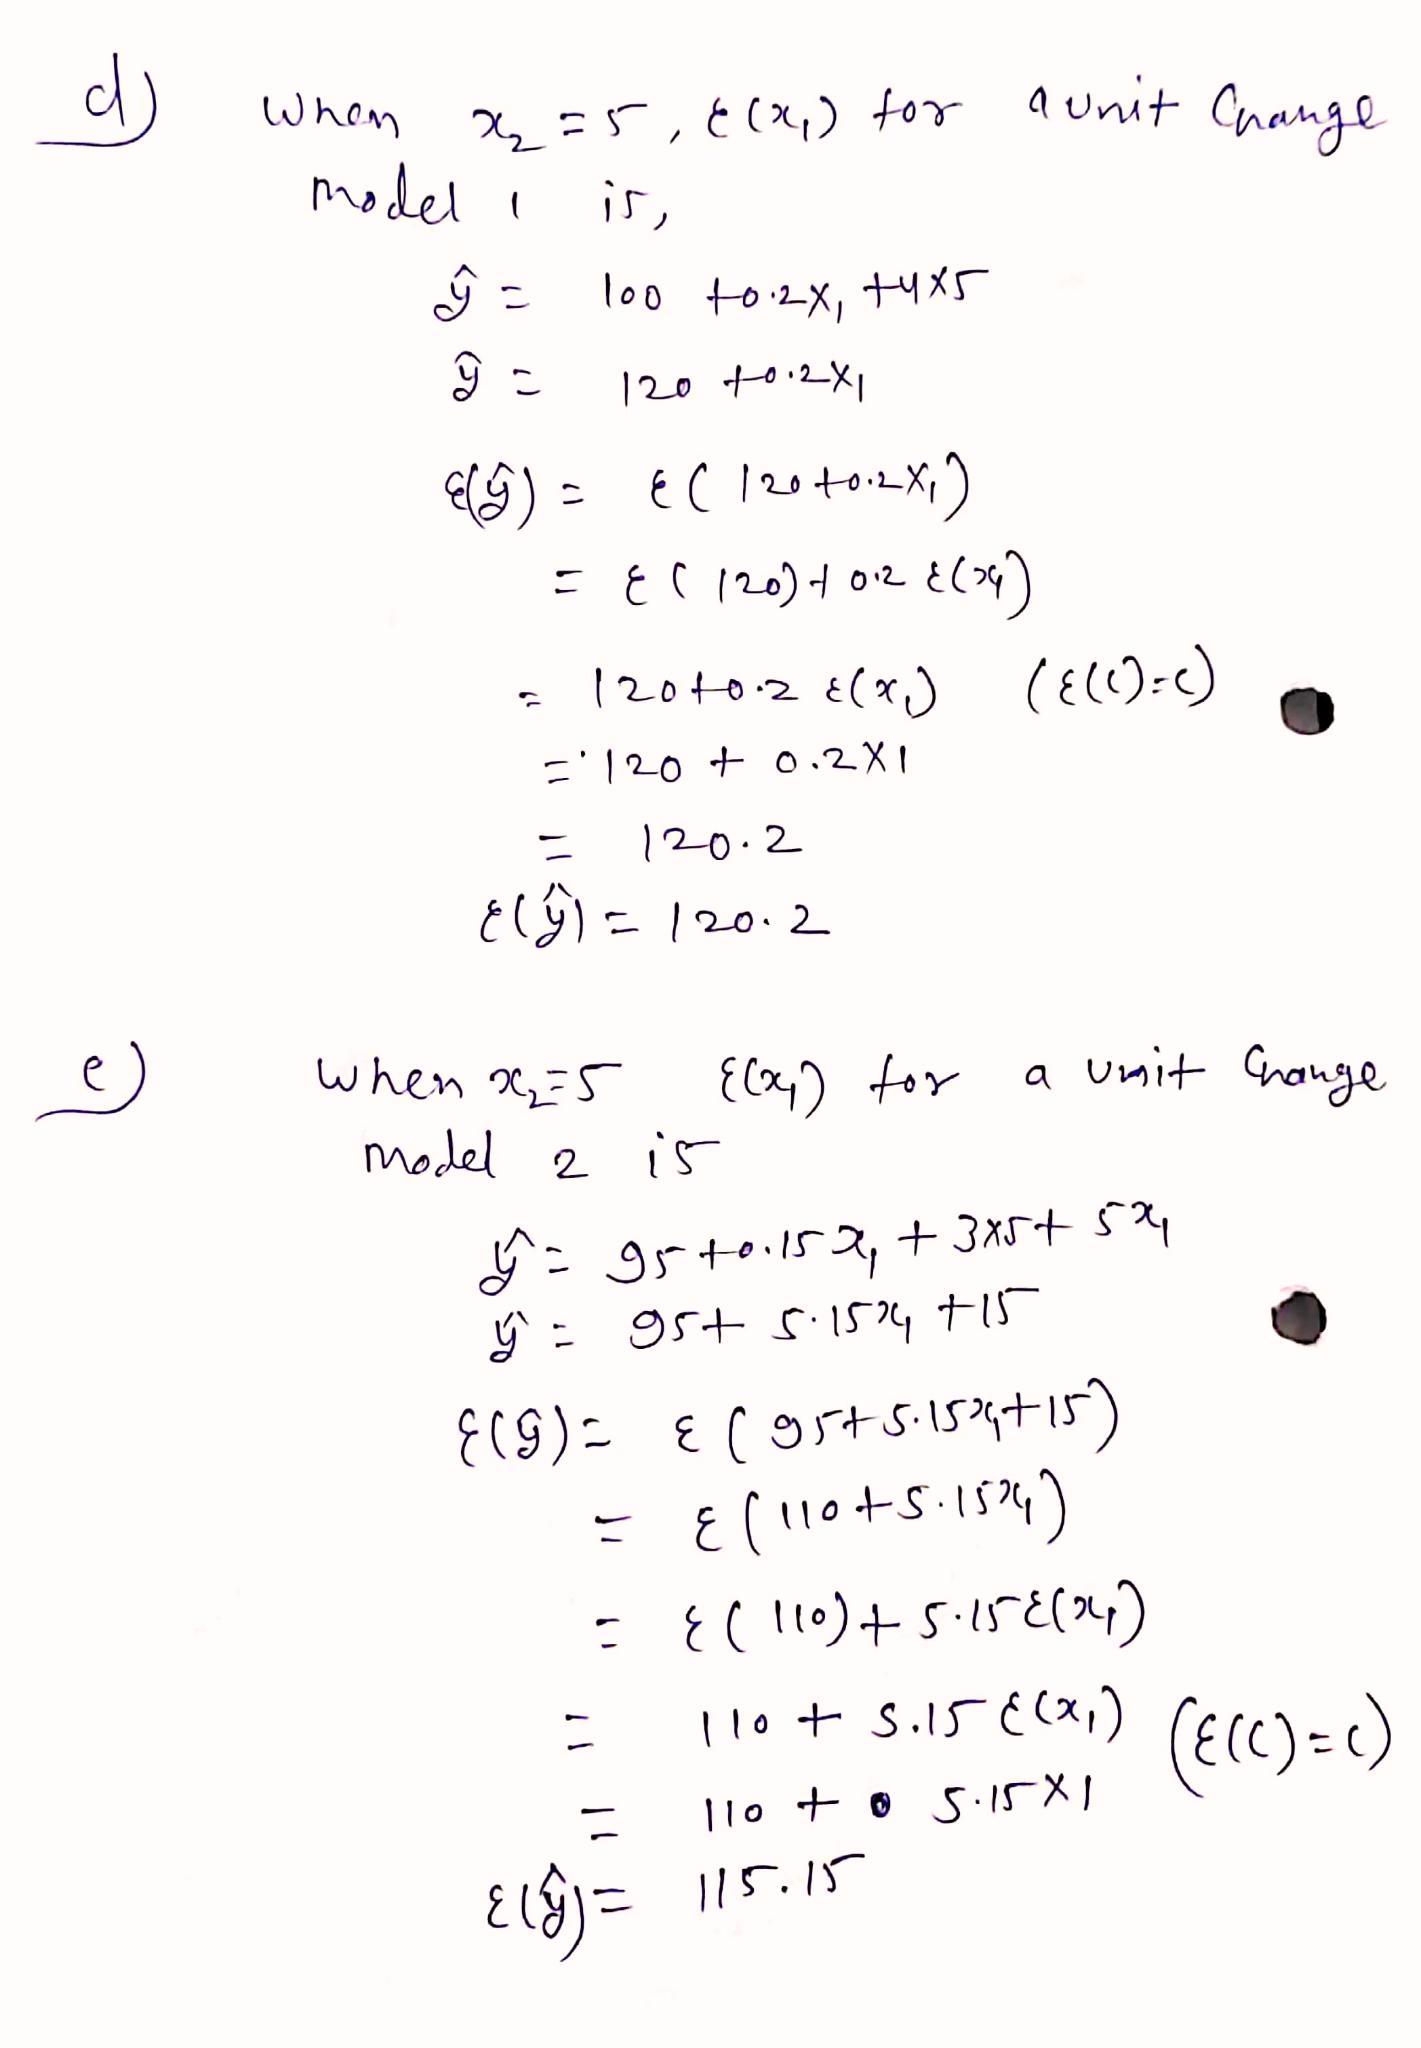 d) when x₂ = 5, ε(x₁) for a unit Change
model 1 is,
ŷ = 100 +0.2X₁ +4X5
ŷ = 120 +0.2X₁
ε(ŷ) = ε( 120+0.2X₁)
= ε( 120)+ 0.2 ε(x₁)
= 120+0.2 ε(x₁) (ε(c)=c)
= 120 + 0.2X1
= 120.2
ε(ŷ) = 120.2
e) when x₂=5 ε(x₁) for a unit Change
model 2 is
ŷ = 95 +0.15x₁ + 3X5+ 5x₁
ŷ = 95+ 5.15x₁ +15
ε(ŷ) = ε ( 95+5.15x₁+15)
= ε ( 110+5.15x₁)
= ε( 110)+ 5.15ε(x₁)
= 110 + 5.15 ε(x₁) (ε(c)=c)
= 110 + 5.15X1
ε(ŷ)= 115.15